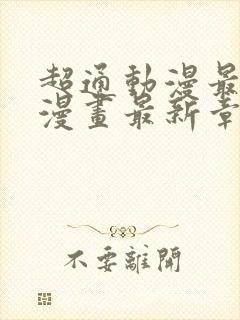 超通動漫最
漫畫最新章
不要離開